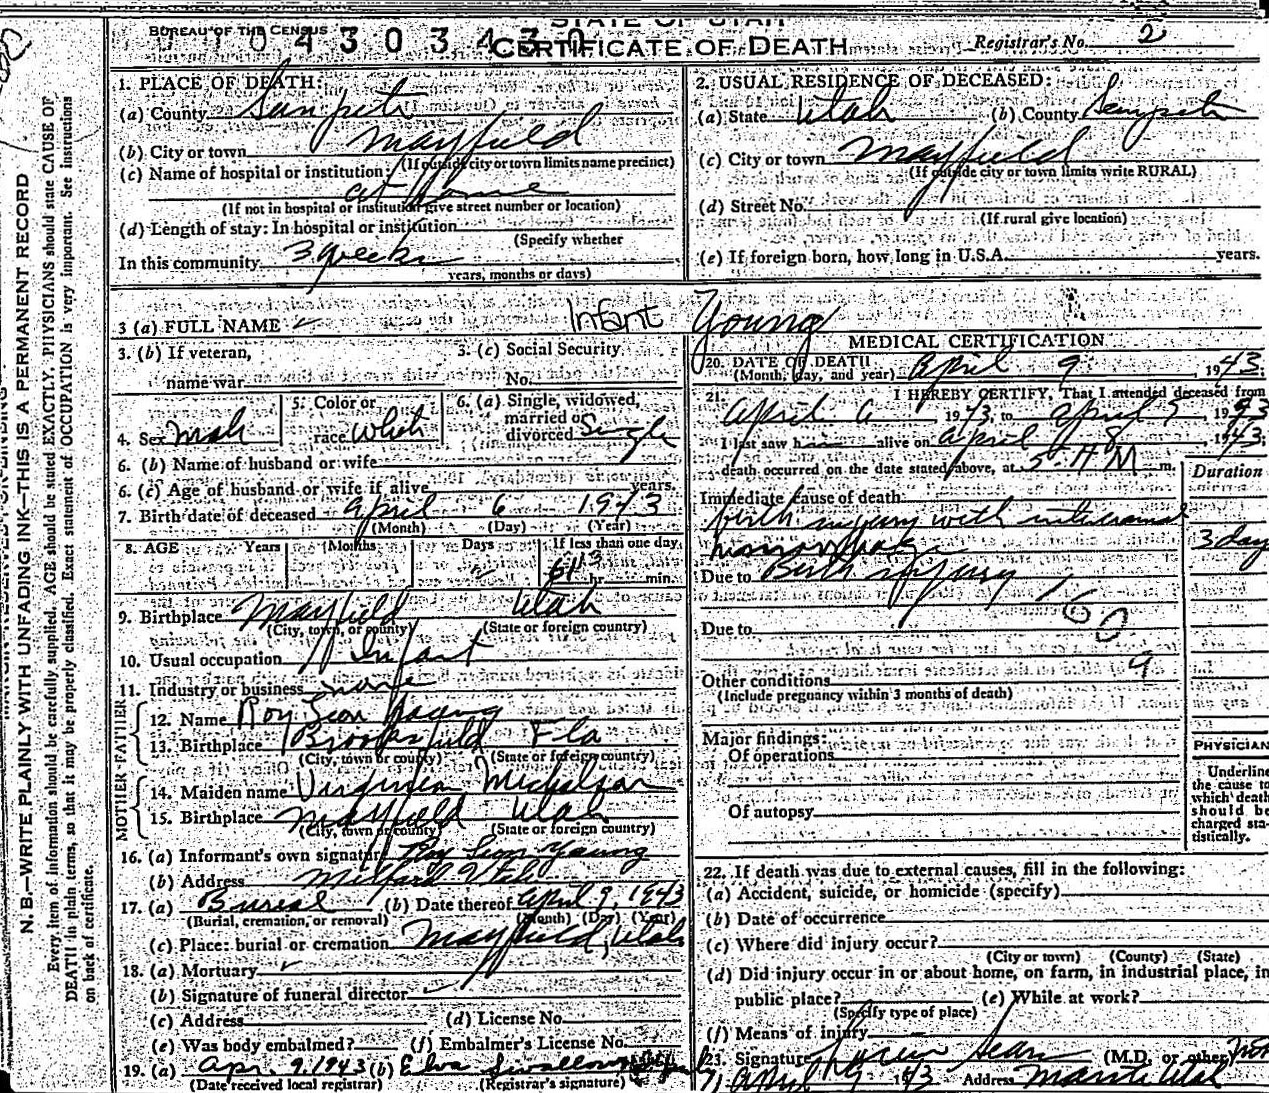 STATE OF UTAH
BUREAU OF THE CENSUS
CERTIFICATE OF DEATH
Registrar's No. 2
1. PLACE OF DEATH:
(a) County Sanpete
(b) City or town Mayfield
(If outside city or town limits name precinct)
(c) Name of hospital or institution:
at home
(If not in hospital or institution give street number or location)
(d) Length of stay: In hospital or institution
(Specify whether
In this community 3 weeks
years, months or days)
2. USUAL RESIDENCE OF DECEASED:
(a) State Utah (b) County Sanpete
(c) City or town Mayfield
(If outside city or town limits write RURAL)
(d) Street No.
(If rural give location)
(e) If foreign born, how long in U.S.A. years.
3 (a) FULL NAME Infant Young
3. (b) If veteran,
name war
3. (c) Social Security
No.
4. Sex Male
5. Color or
race White
6. (a) Single, widowed,
married or
divorced Single
6. (b) Name of husband or wife
6. (c) Age of husband or wife if alive years
7. Birth date of deceased April 6 1943
(Month) (Day) (Year)
8. AGE Years Months Days If less than one day
hr. min.
9. Birthplace Mayfield Utah
(City, town, or county) (State or foreign country)
10. Usual occupation Infant
11. Industry or business none
MOTHER FATHER
12. Name Roy Young
13. Birthplace Brooksfield Fla
(City, town or county) (State or foreign country)
14. Maiden name Virginia
15. Birthplace Mayfield Utah
(City, town or county) (State or foreign country)
16. (a) Informant's own signature Roy Young
(b) Address Milford Utah
17. (a) Burial (b) Date thereof April 9, 1943
(Burial, cremation, or removal) (Month) (Day) (Year)
(c) Place: burial or cremation Mayfield, Utah
18. (a) Mortuary
(b) Signature of funeral director
(c) Address (d) License No.
(e) Was body embalmed? (f) Embalmer's License No.
19. (a) Apr. 9. 1943 (b) Elva
(Date received local registrar) (Registrar's signature)
MEDICAL CERTIFICATION
20. DATE OF DEATH
(Month, day, and year) April 9 1943;
21. I HEREBY CERTIFY, That I attended deceased from
April 6 1943 to April 1943
I last saw h alive on April 8, 1943;
death occurred on the date stated above, at 5 A M m.
Duration
Immediate cause of death
birth injury with
3 day
Due to Birth injury
160
Due to
9
Other conditions
(Include pregnancy within 3 months of death)
Major findings:
Of operations
Of autopsy
PHYSICIAN
Underline
the cause to
which death
should be
charged sta-
tistically.
22. If death was due to external causes, fill in the following:
(a) Accident, suicide, or homicide (specify)
(b) Date of occurrence
(c) Where did injury occur?
(City or town) (County) (State)
(d) Did injury occur in or about home, on farm, in industrial place, in
public place? (e) While at work?
(Specify type of place)
(f) Means of injury
23. Signature (M.D. or other)
April 9 1943 Address Manti Utah
N. B.—WRITE PLAINLY WITH UNFADING INK—THIS IS A PERMANENT RECORD
Every item of information should be carefully supplied. AGE should be stated EXACTLY. PHYSICIANS should state CAUSE OF
DEATH in plain terms, so that it may be properly classified. Exact statement of OCCUPATION is very important. See instructions
on back of certificate.